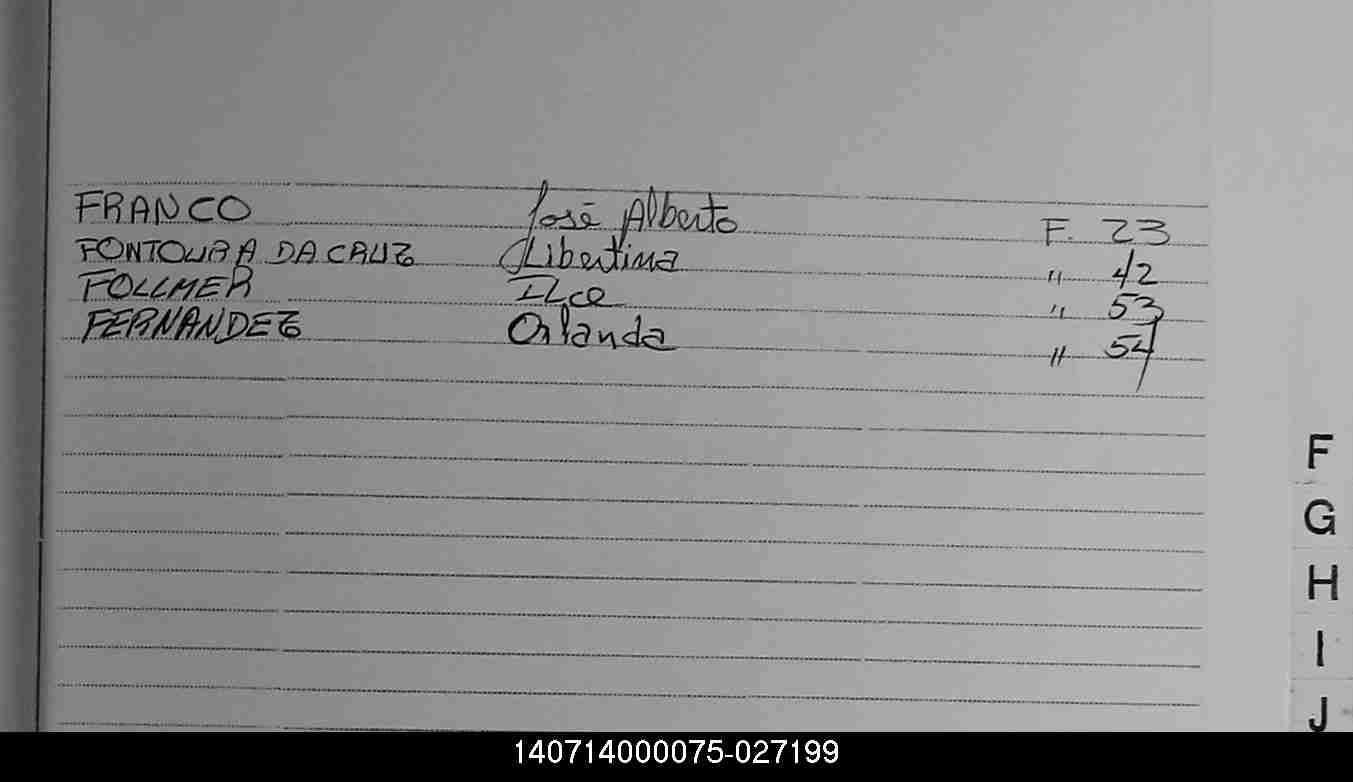 FRANCO José Alberto F. 23
FONTOURA DA CRUZ Libertina " 42
FOLLMER Ilce " 53
FERNANDEZ Orlanda " 54
F
G
H
I
J
140714000075-027199